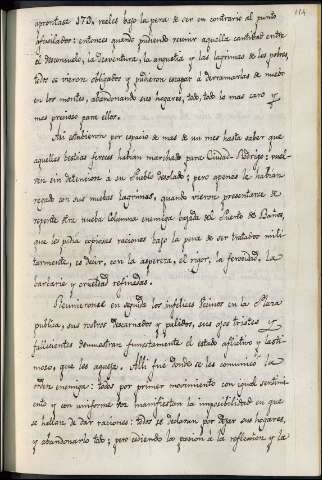 114
aprontase 570. reales bajo la pena de ser en contrario al punto
afusilados: entonces quando pudiendo reunir aquella cantidad entre
el desconsuelo, la desventura, la angustia y las lagrimas de los pobres,
todos se vieron obligados y pudieron escapar á derramarlas de nuebo
en los montes, abandonando sus hogares, todo, todo lo mas caro y
mas precioso para ellos.
Asi estubieron por espacio de mas de un mes hasta saber que
aquellas bestias feroces habian marchado para Ciudad-Rodrigo; vuel-
ven sin detencion á su Pueblo desolado; pero apenas le habian
regado con sus nuebas lagrimas, quando vieron presentarse de
repente otra nueba Columna enemiga bajada del Puerto de Baños,
que les pidio copiosas raciones bajo la pena de ser tratados mili-
tarmente, es decir, con la aspereza, el rigor, la ferocidad, la
barbarie y crueldad refinadas.
Reunieronse en seguida los infelices Vecinos en la Plaza
publica, sus rostros descarnados y palidos, sus ojos tristes y
fulicientes demuestran funestamente el estado aflictivo y lasti-
moso, que les aqueja. Alli fue donde se les comunicó la
orden enemiga: todos por primer movimiento con igual sentimi-
ento y con uniforme voz manifiestan la imposibilidad en que
se hallan de dar raciones: todos se declaran por dejar sus hogares,
y abandonarlo todo; pero cediendo la pasion á la reflexion y la